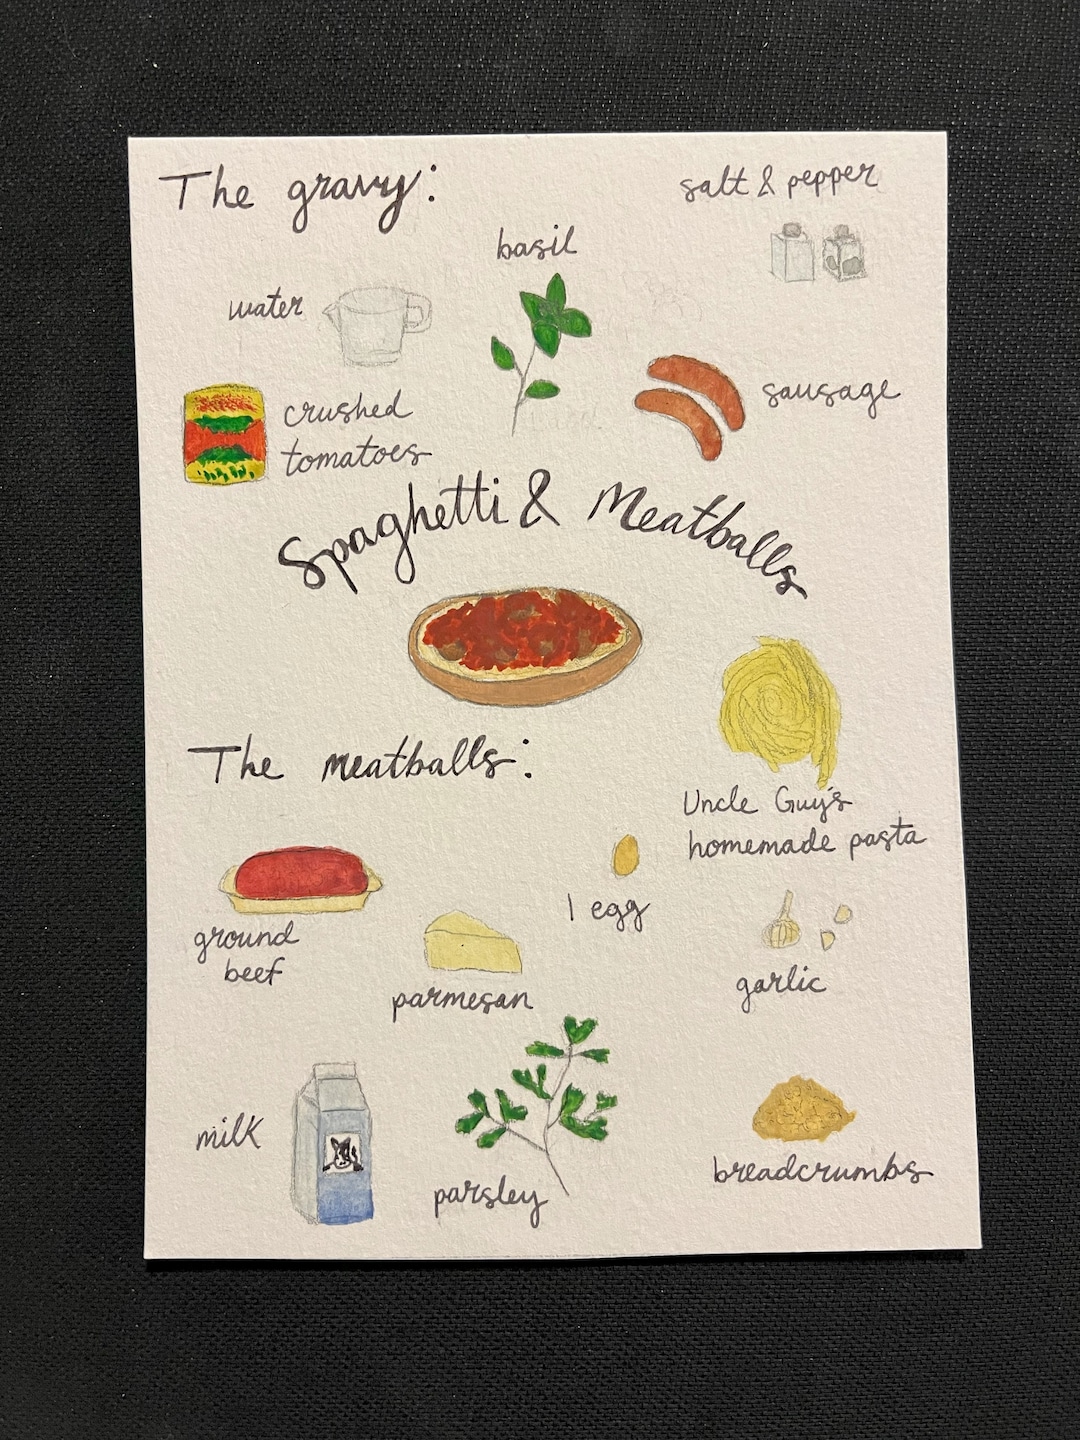 The gravy:
salt & pepper
basil
water
crushed
tomatoes
sausage
Spaghetti & Meatballs
The meatballs:
Uncle Guy's
homemade pasta
1 egg
ground
beef
parmesan
garlic
milk
parsley
breadcrumbs